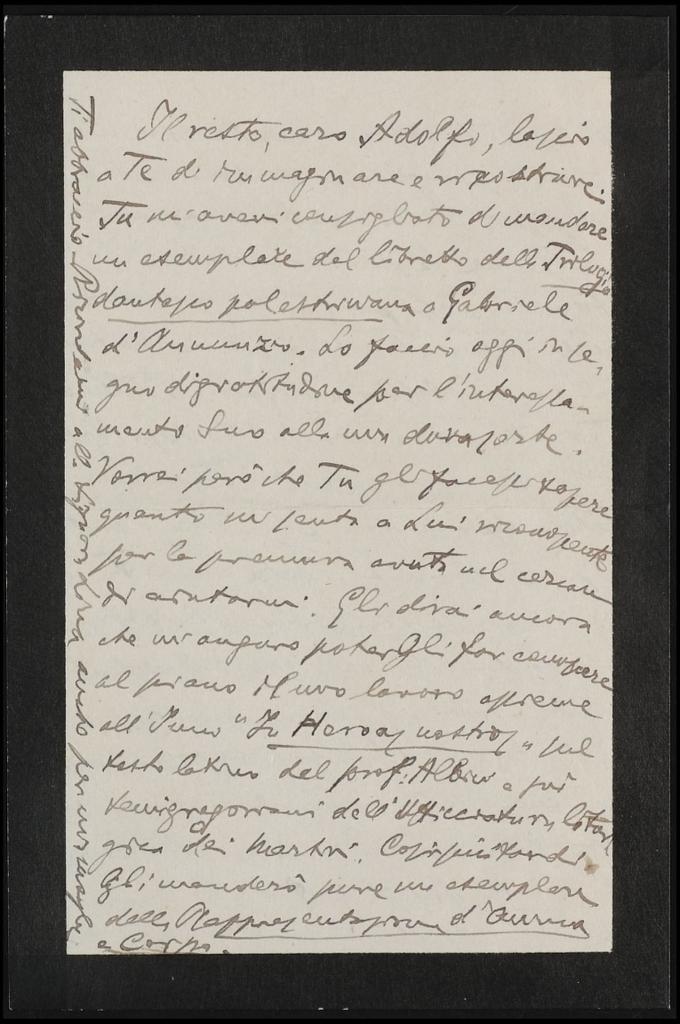 Il resto, caro Adolfo, lascio
a Te d'immaginare e ricostruire.
Tu mi avevi consigliato di mandare
un esemplare del libretto della Trilogia
dantesco palestriniana a Gabriele
d'Annunzio. Lo faccio oggi in se-
gno di gratitudine per l'interessa-
mento Suo alla mia dura sorte.
Vorrei però che Tu gli facessi sapere
quanto mi senta a Lui riconoscente
per la premura avuta nel cercare
di aiutarmi. Gli dirai ancora
che mi auguro poterGli far conoscere
al piano il mio lavoro assieme
all'Inno "In Heroas nostros" sul
testo latino del prof. Albini e sui
temi gregoriani dell'Ufficiatura litur-
gica dei Martiri. Così più tardi
Gli manderò pure un esemplare
della Rappresentazione d'Anima
e Corpo.
Ti abbraccio. Ricordami alla Signora anche per mia moglie